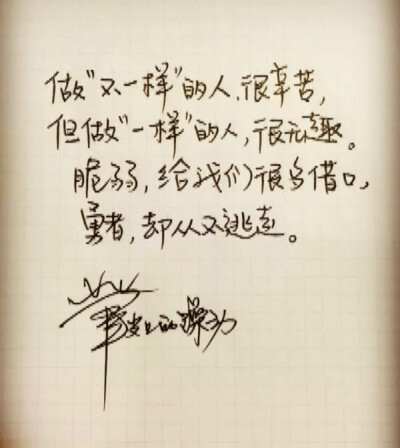 做“不一样”的人,很辛苦,
但做“一样”的人,很无趣。
脆弱,给我们很多借口,
勇者,却从不逃走。
上的躁动